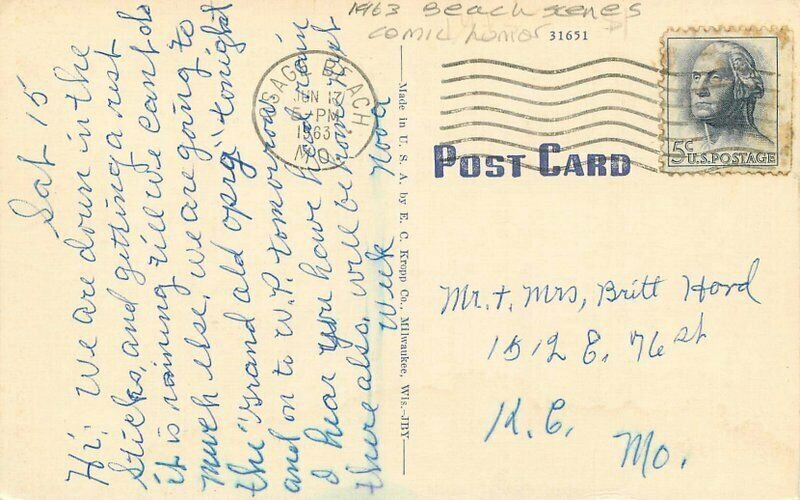 1963 Beach scenes
comic humor
31651
OSAGE BEACH,
JUN 17
PM
1963
MO.
5¢ U.S. POSTAGE
POST CARD
Made in U. S. A. by E. C. Kropp Co., Milwaukee, Wis.-JBY
Sat 15
Hi: We are down in the
sticks, and getting a rest
it is raining till we cant do
much else. We are going to
the "Grand old opry" tonight
and on to W.P. tomorrow
I hear you have had rain
there also. will be home next
Week
Mr. + Mrs, Britt Hord
1512 E. 76 st
K.C.
Mo.